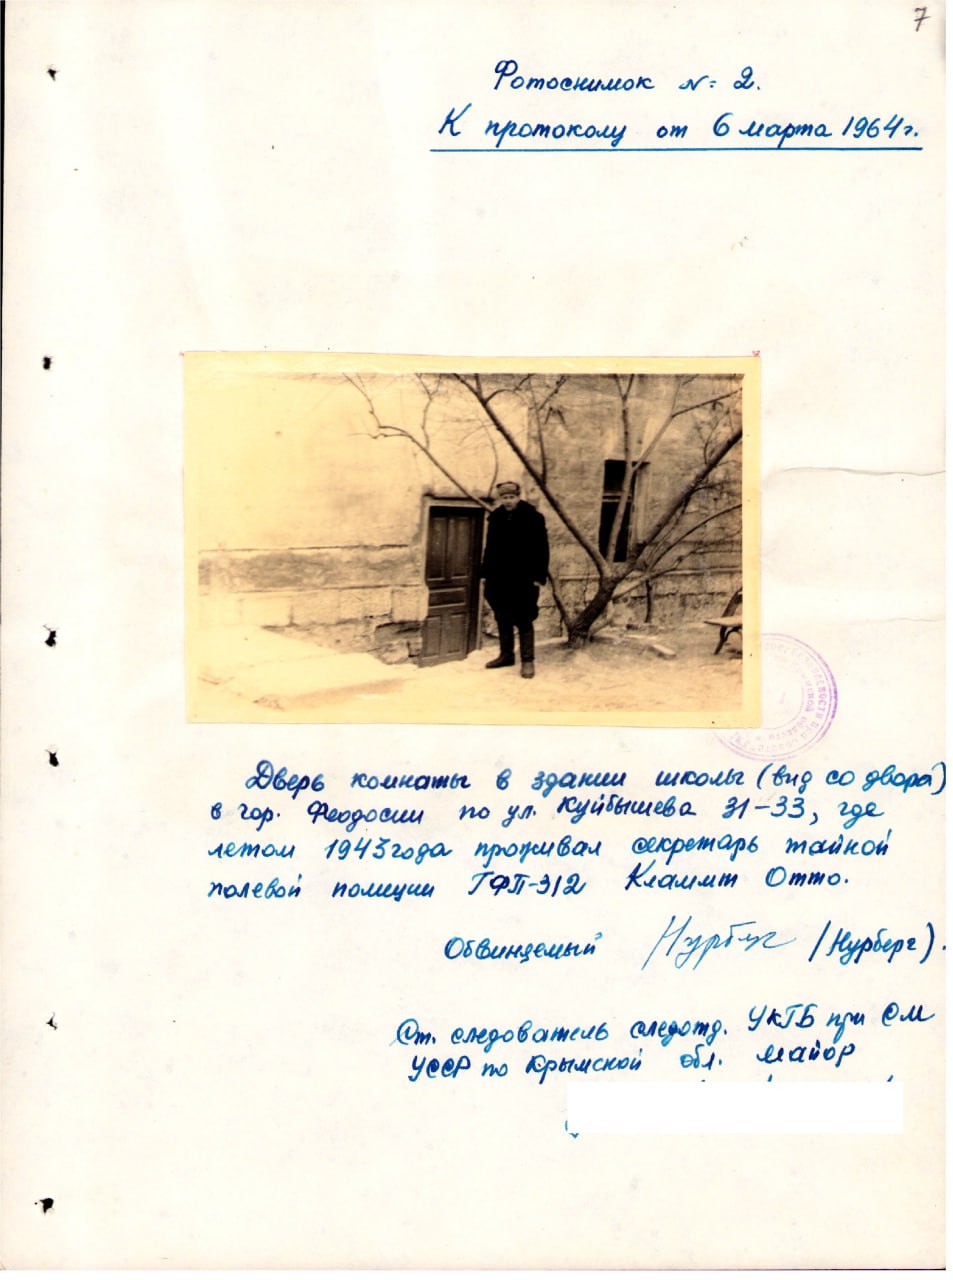 7
Фотоснимок №: 2.
К протоколу от 6 марта 1964 г.
Дверь комнаты в здании школы (вид со двора)
в гор. Феодосии по ул. Куйбышева 31-33, где
летом 1943 года проживал секретарь тайной
полевой полиции ГФП-312 Кламмт Отто.
Обвиняемый Нурберг /Нурберг).
Ст. следователь следотд. УКГБ при СМ
УССР по Крымской обл. майор